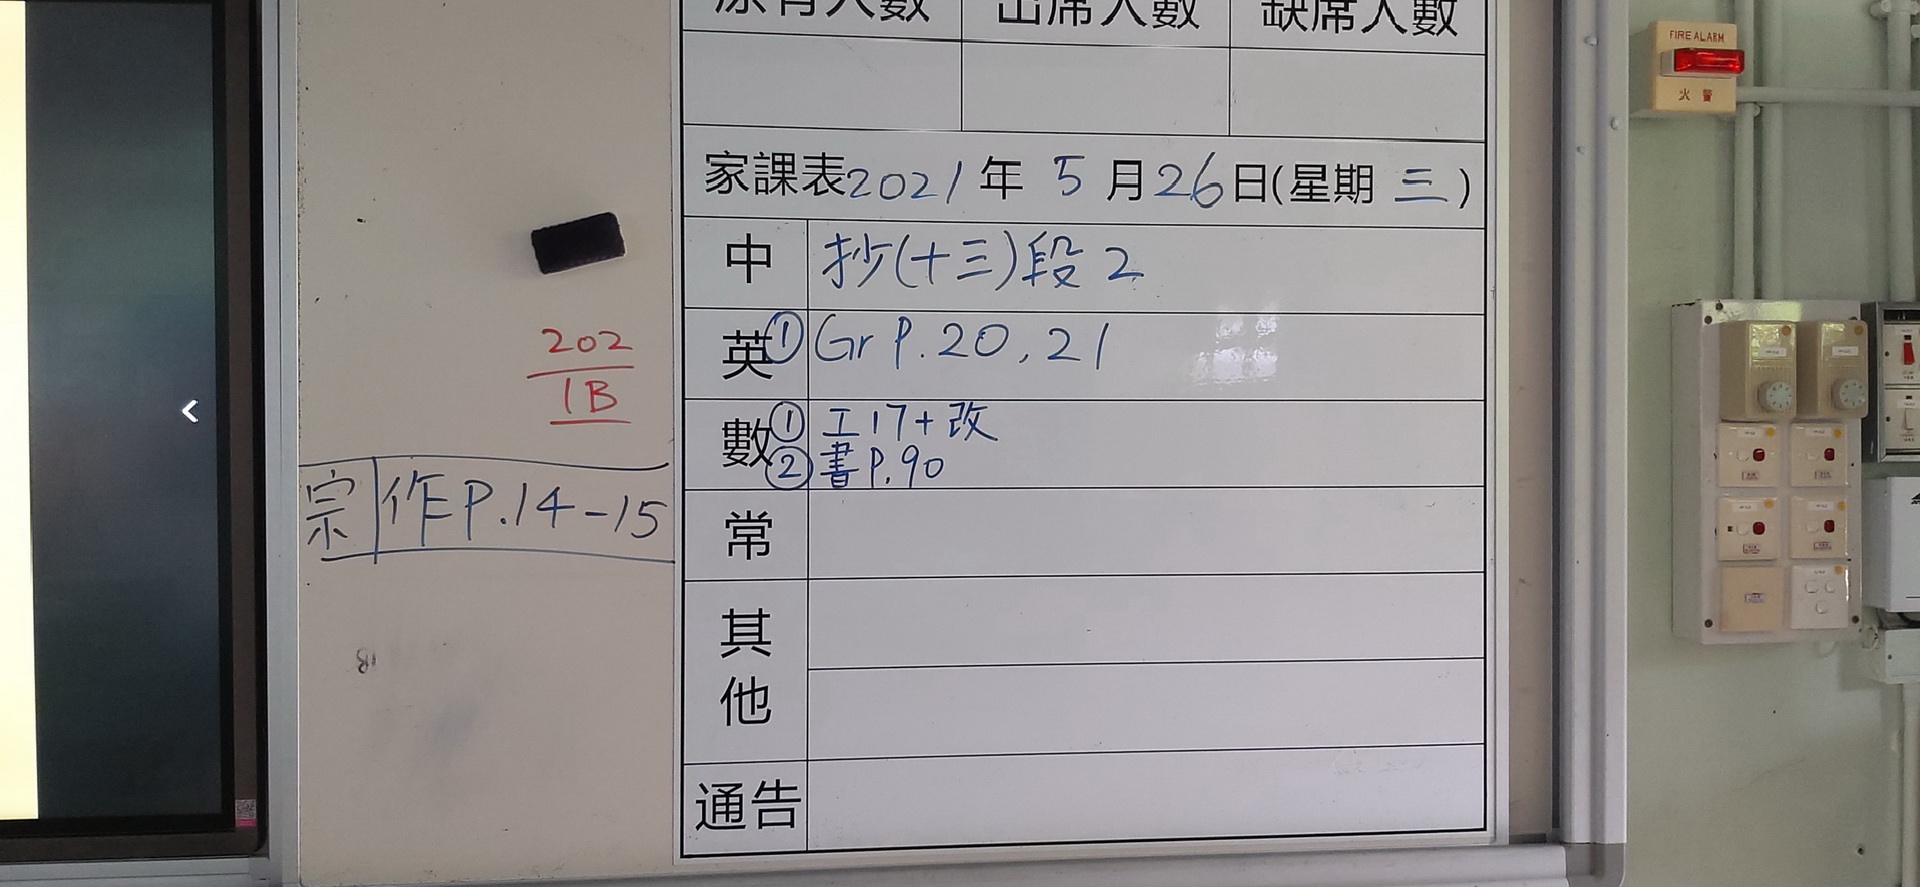 原有人數 出席人數 缺席人數
家課表2021年5月26日(星期三)
中 抄(十三)段2
英 ①Gr P.20,21
數 ①工17+改
②書P.90
常
其他
通告
202
1B
宗 作P.14-15
FIRE ALARM
火警